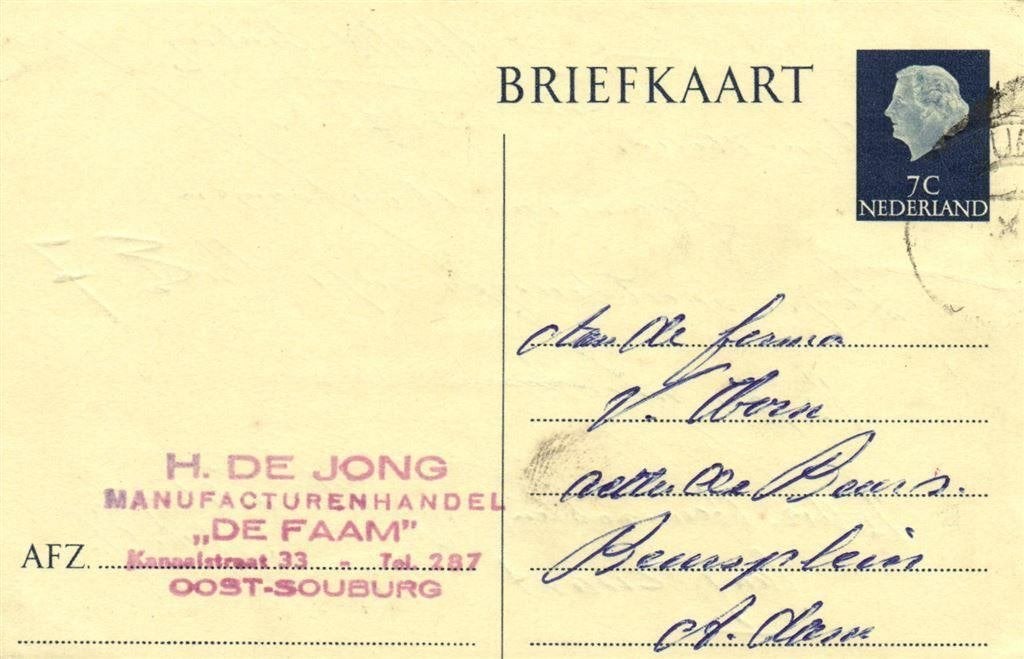 BRIEFKAART
7C
NEDERLAND
Aan de firma
V.
Beurs.
Beursplein
A. dam
H. DE JONG
MANUFACTURENHANDEL
„DE FAAM”
AFZ. Kanaalstraat 33 - Tel. 287
OOST-SOUBURG